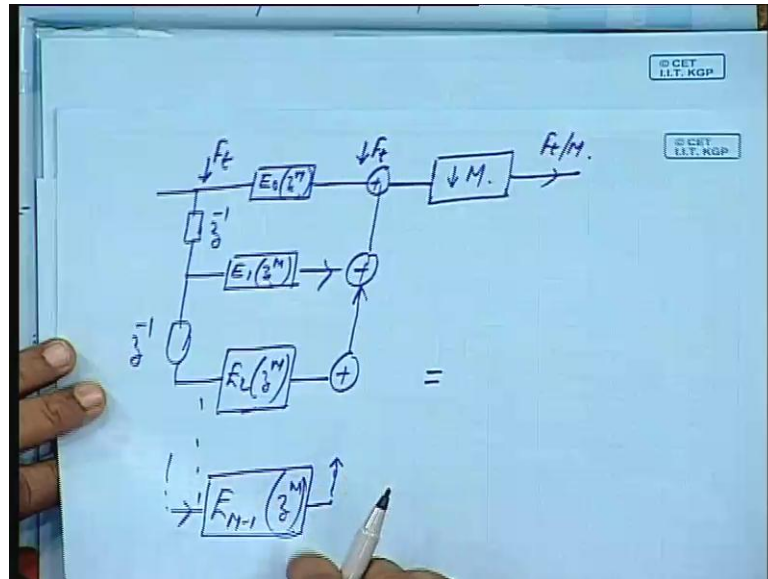 © CET
I.I.T. KGP
© CET
I.I.T. KGP
↓Ft
↓Ft
Ft/M.
E₀(z^M)
+
↓M.
z⁻¹
E₁(z^M)
+
z⁻¹
E₂(z^M)
+
=
E_{M-1}(z^M)